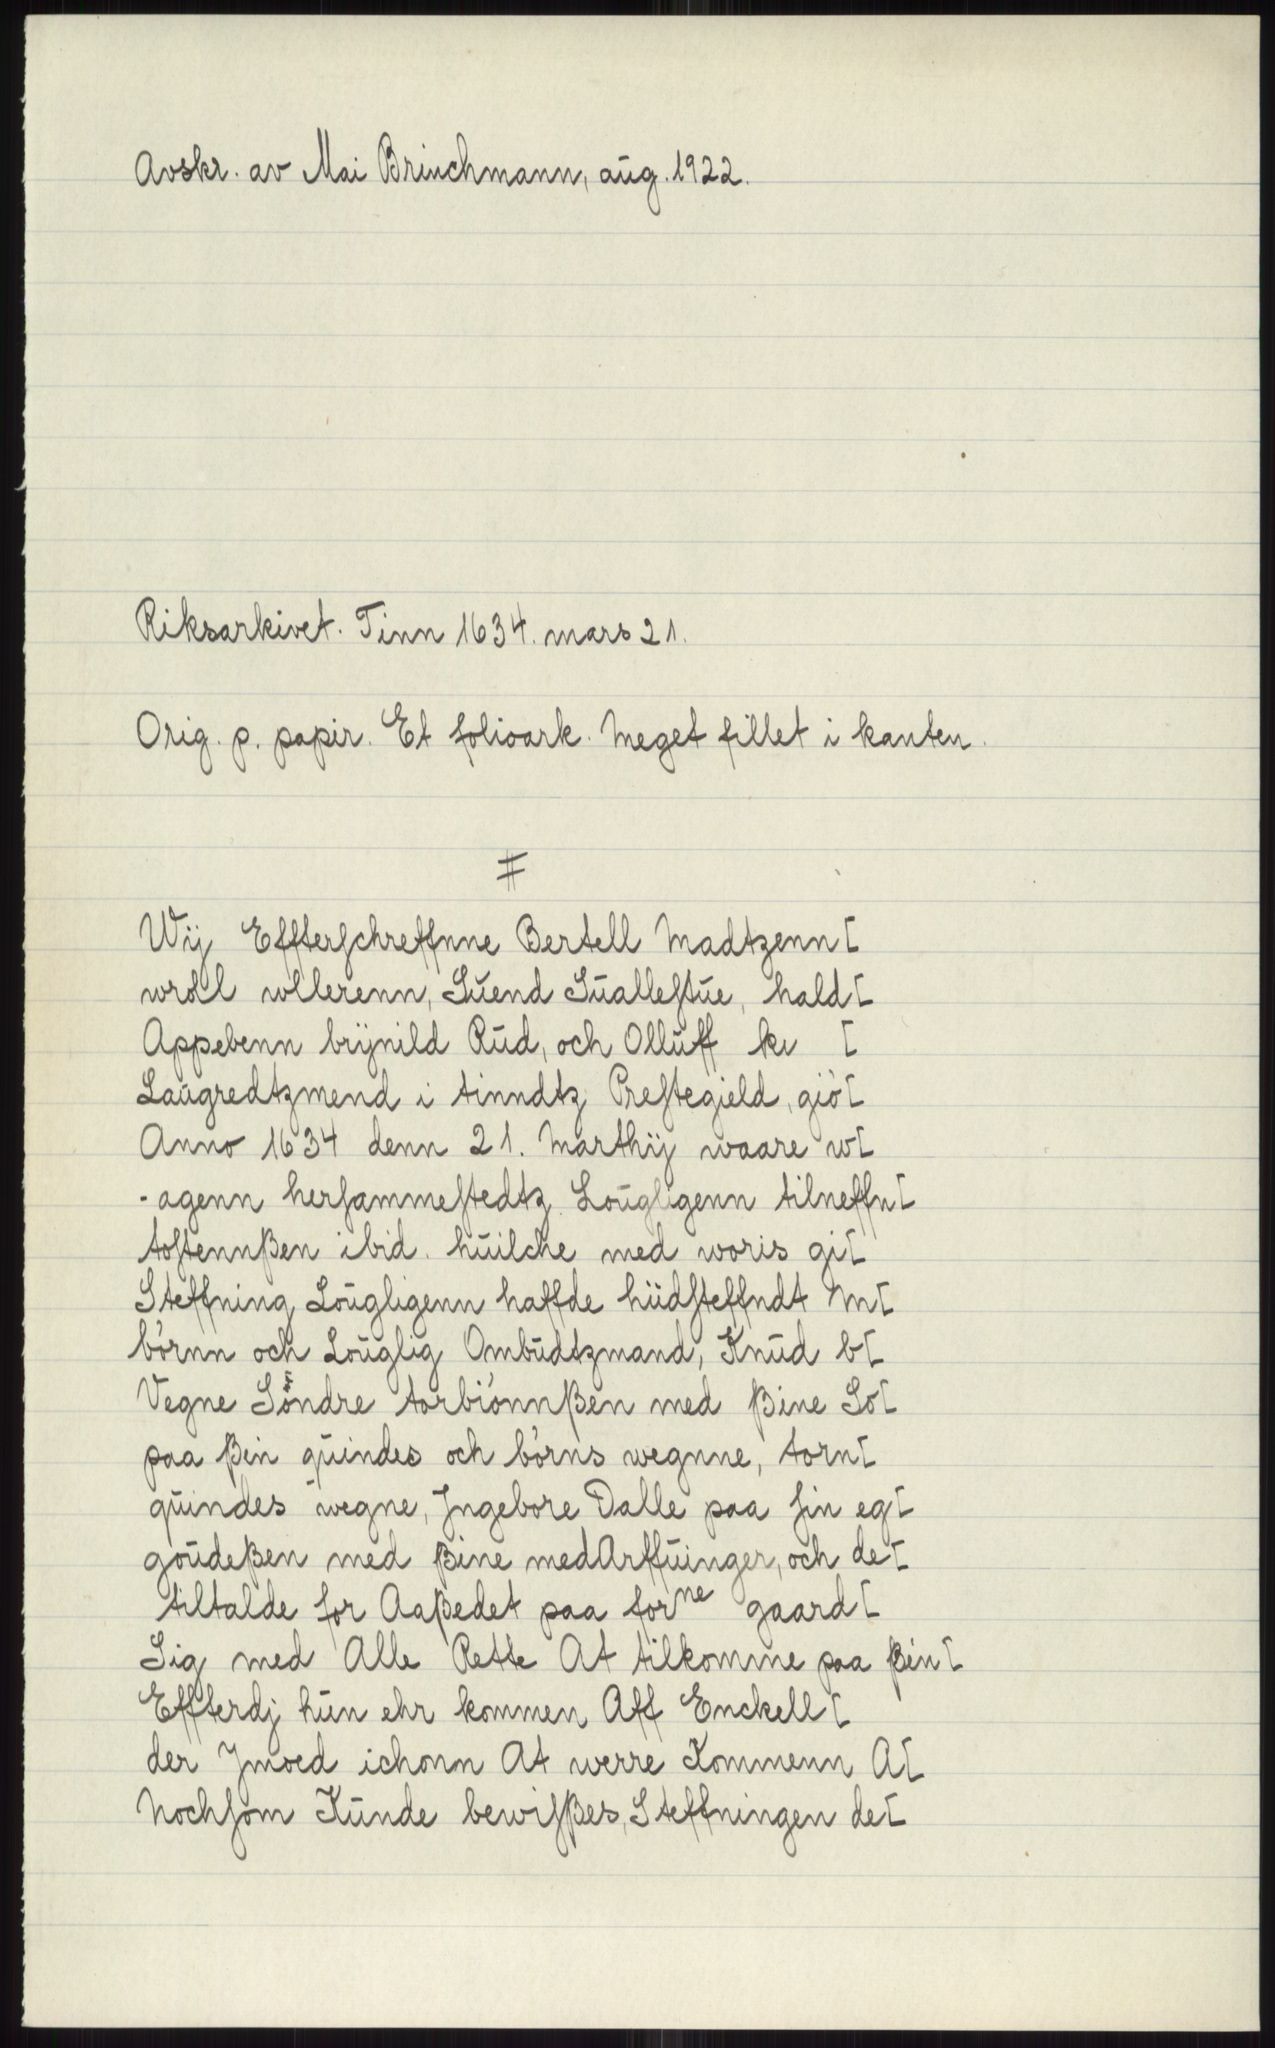 Avskr. av Mai Brinchmann, aug. 1922.
Riksarkivet. Tinn 1634. mars 21.
Orig. p. papir. Et folioark. Meget fillet i kanten.
Wij Effterſchreffnne Bertell Madtzenn [
wroll wllerenn, Suend Sualleſtue, hald [
Appebenn brijnild Rud, och Olluff ku [
Laugredtzmend i tinndtz Preſtegield, giö [
Anno 1634 denn 21. Marthij waare w [
-agenn herſammeſtedtz Lougligenn tilneffn [
toſtennßen ibid. huilche med woris gi [
Steffning Lougligenn haffde hüdſteffndt M [
börnn och Louglig Ombudtzmand, Knud b [
Vegne Söndre torbiönnßen med ßine So [
paa ßin quindes och börns wegnne, torn [
quindes wegne, Jngebore Dalle paa ſin eg [
goudeßen med ßine medArffuinger, och de [
tiltalde for Aaßedet paa forne gaard [
Sig med Alle Rette At tilkomme paa ßin [
Effterdj hun ehr kommen Aff Enckell [
der Jmoed ichonn At werre Kommenn A [
Nochſom Kunde bewiſßes, Steffningen de [